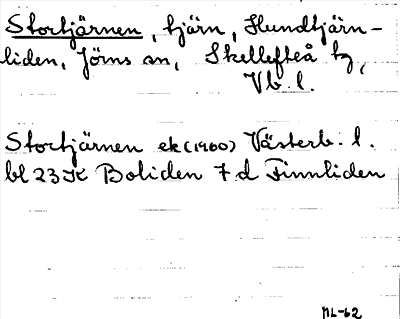 Stortjärnen, tjärn, Hundtjärn-
liden, Jörns sn, Skellefteå tg,
Vb. l.
Stortjärnen ek (1960) Västerb. l.
bl 23 K Boliden 7 d Finnliden
ML-62